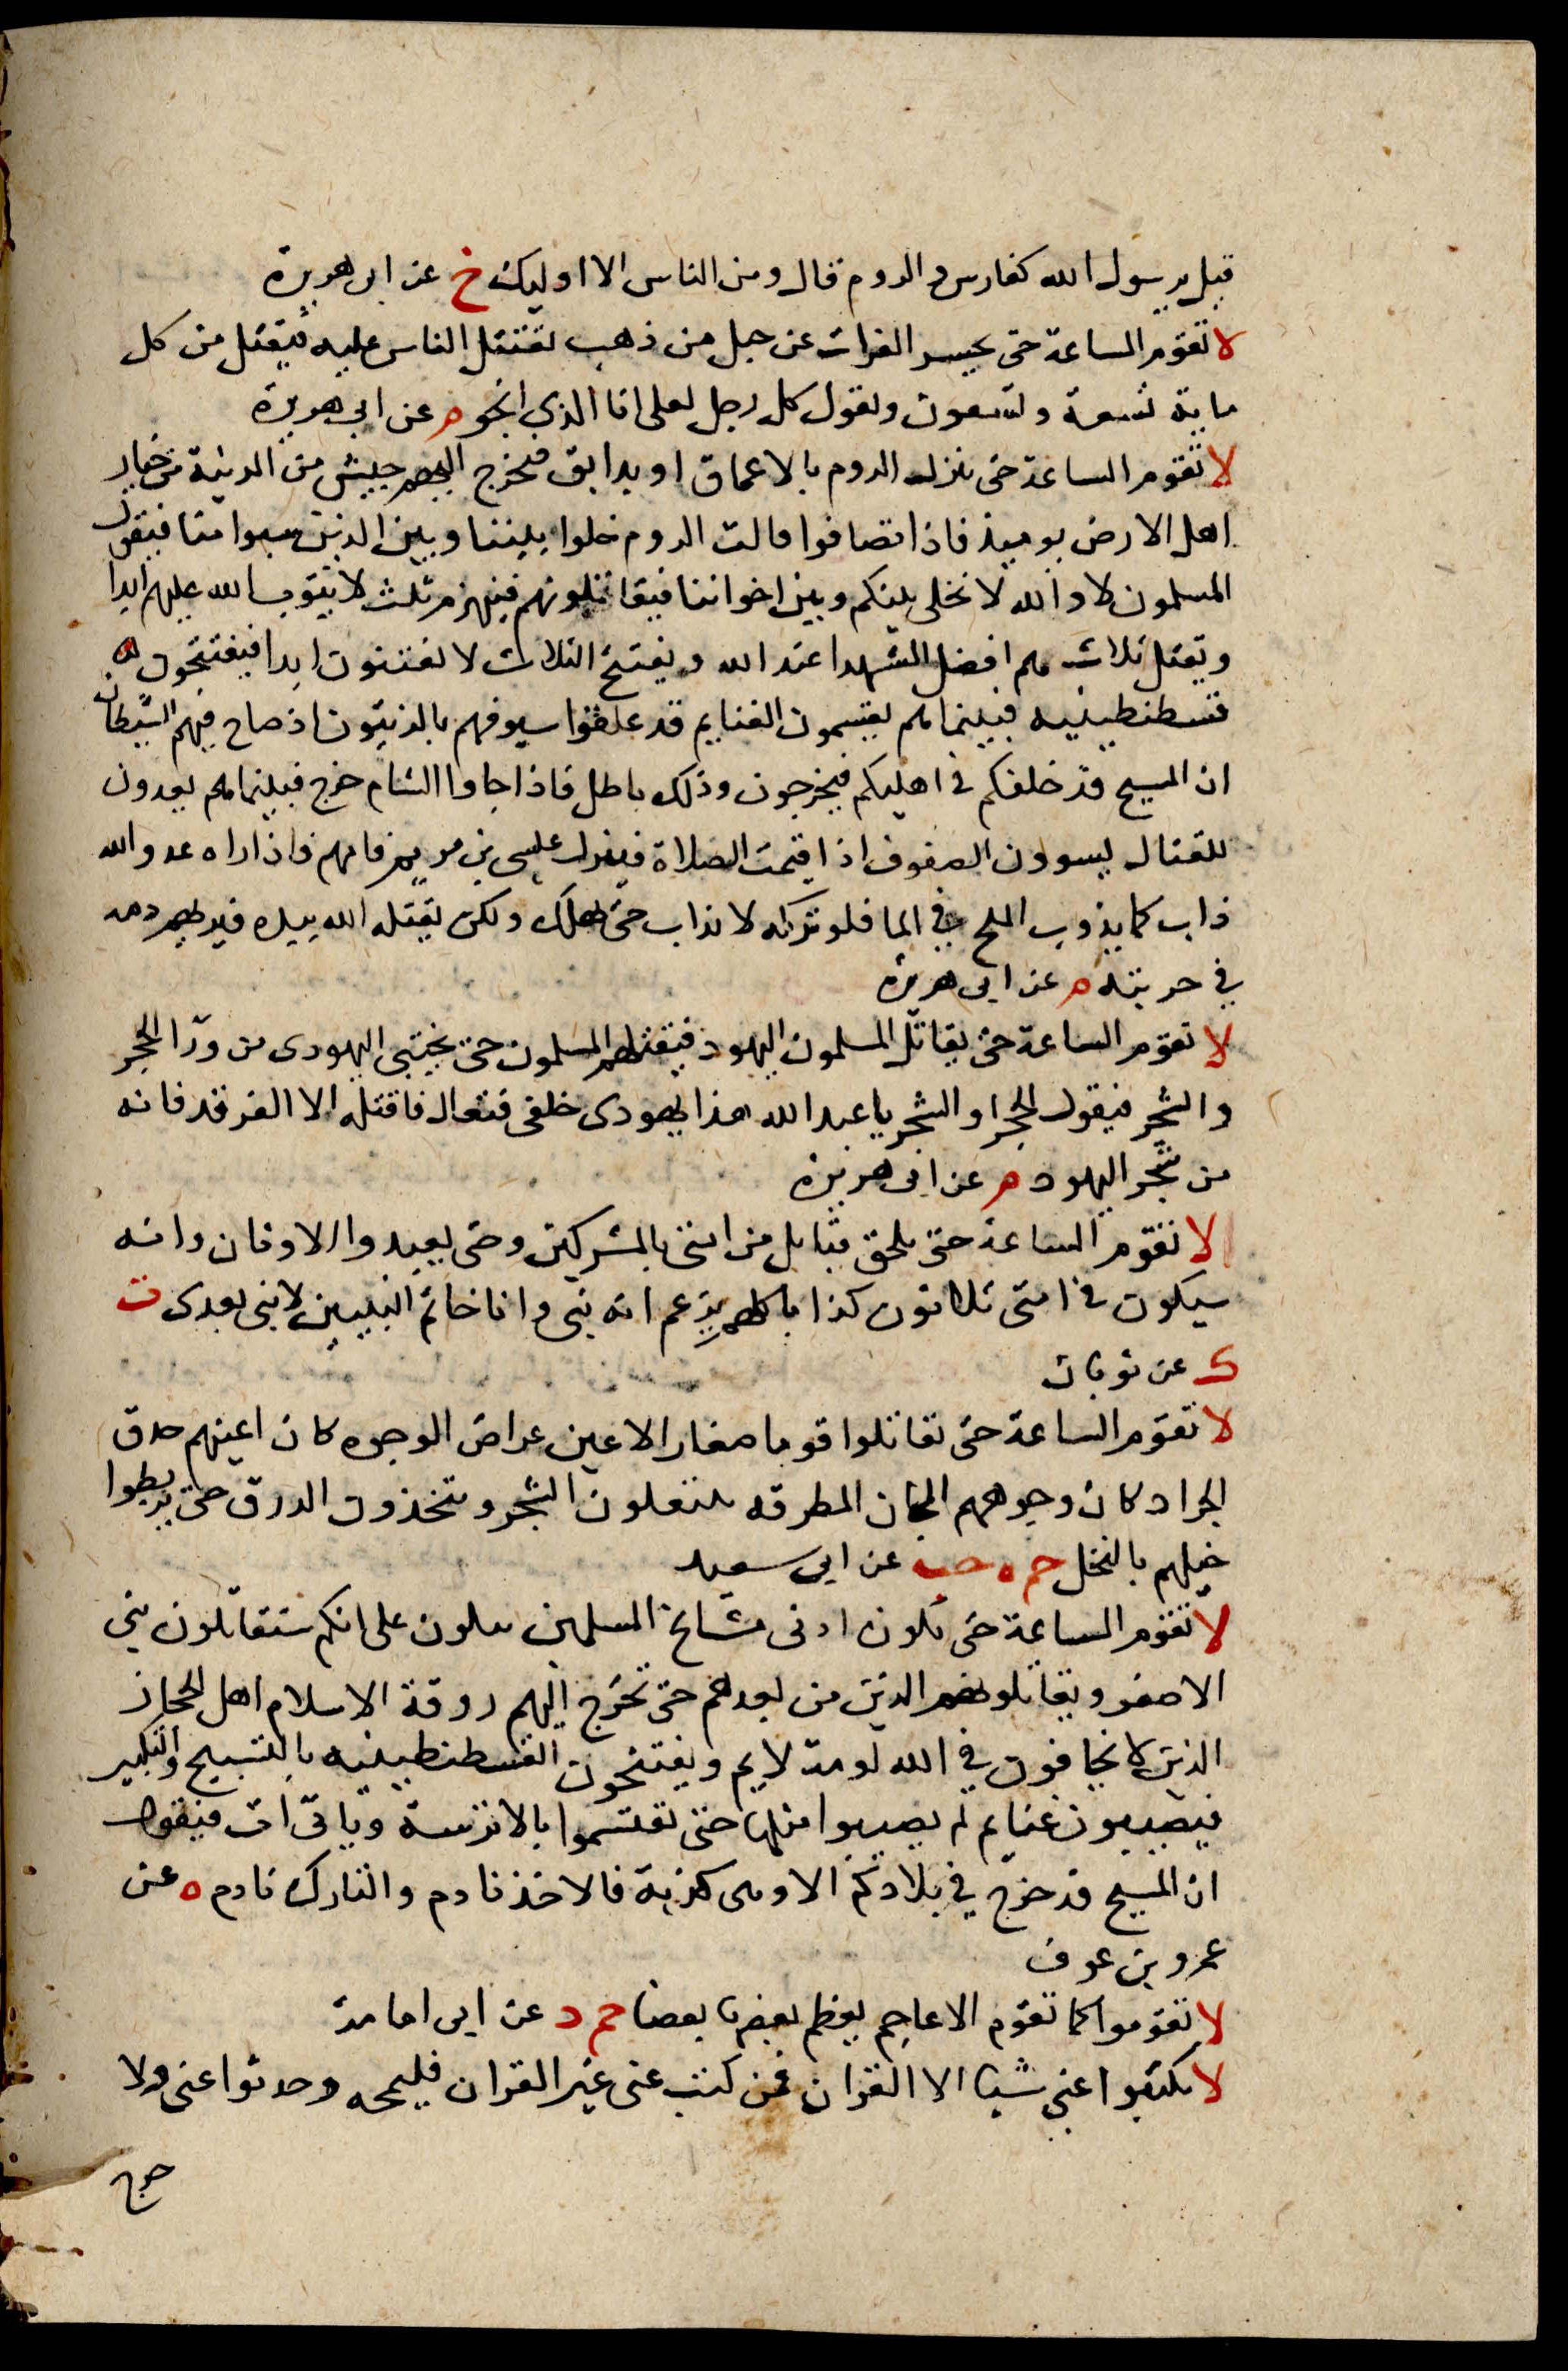 قيل يرسول الله كفارس والروم قال ومن الناس الا اوليك خ عن ابى هريرة
لا تقوم الساعة حتى يحسر الفرات عن جبل من ذهب تقتتل الناس عليه فيقتل من كل
ماية تسعة وتسعون ويقول كل رجل لعلى انا الذي انجو م عن ابى هريرة
لا تقوم الساعة حتى ينزل الروم بالاعماق او بدابق فيخرج اليهم جيش من المدينة من خيار
اهل الارض يوميذ فاذا تصافوا قالت الروم خلوا بيننا وبين الذين سبوا منا فيقول
المسلمون لا والله لا نخلى بينكم وبين اخواننا فيقاتلونهم فينهزم ثلث لا يتوب الله عليهم ابدا
ويقتل ثلاث هم افضل الشهدا عند الله ويفتتح الثلاث لا يفتنون ابدا فيفتتحون
قسطنطينيه فبينما هم يقسمون الغنايم قد علقوا سيوفهم بالزيتون اذ صاح فيهم الشيطان
ان المسيح قد خلفكم فى اهليكم فيخرجون وذلك باطل فاذا جاوا الشام خرج فبينما هم يعدون
للقتال يسوون الصفوف اذ اقيمت الصلاة فينزل عيسى بن مريم فامهم فاذا راه عدو الله
ذاب كما يذوب الملح في الما فلو تركه لانذاب حتى يهلك ولكن يقتله الله بيده فيريهم دمه
في حربته م عن ابى هريرة
لا تقوم الساعة حتى يقاتل المسلمون اليهود فيقتلهم المسلمون حتى يختبى اليهودى من ورا الحجر
والشجر فيقول الحجر او الشجر يا عبد الله هذا يهودى خلفى فتعال فاقتله الا الغرقد فانه
من شجر اليهود م عن ابى هريرة
لا تقوم الساعة حتى يلحق قبايل من امتى بالمشركين وحتى يعبدوا الاوثان وانه
سيكون فى امتى ثلاثون كذابا كلهم يزعم انه نبى وانا خاتم النبيين لا نبى بعدى ت
ك عن ثوبان
لا تقوم الساعة حتى تقاتلوا قوما صغار الاعين عراض الوجوه كان اعينهم حدق
الجراد كان وجوههم المجان المطرقه ينتعلون الشجر ويتخذون الدرق حتى يربطوا
خيلهم بالنخل حم ه حب عن ابى سعيد
لا تقوم الساعة حتى يكون ادنى مسالح المسلمين ببولاء على انكم ستقاتلون بنى
الاصفر ويقاتلونهم الذين من بعدهم حتى تخرج اليهم روقة الاسلام اهل الحجاز
الذين لا يخافون في الله لومة لايم ويفتتحون القسطنطينيه بالتسبيح والتكبير
فيصيبون غنايم لم يصيبوا مثلها حتى تقتسموا بالاترسة وياتى ات فيقول
ان المسيح قد خرج في بلادكم الا وهى كذبة فالاخذ نادم والتارك نادم ه عن
عمرو بن عوف
لا تقوموا كما تقوم الاعاجم يعظم بعضها بعضا حم د عن ابى امامة
لا تكتبوا عنى شيئا الا القران فمن كتب عنى غير القران فليمحه وحدثوا عنى ولا
حرج